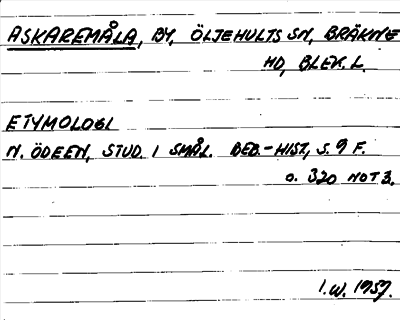 ASKAREMÅLA, BY, ÖLJEHULTS SN, BRÄKNE
HD, BLEK. L.
ETYMOLOGI
N. ÖDEEN, STUD. I SMÅL. BEB.-HIST., S. 9 F.
O. 320 NOT 3.
I.W. 1957.